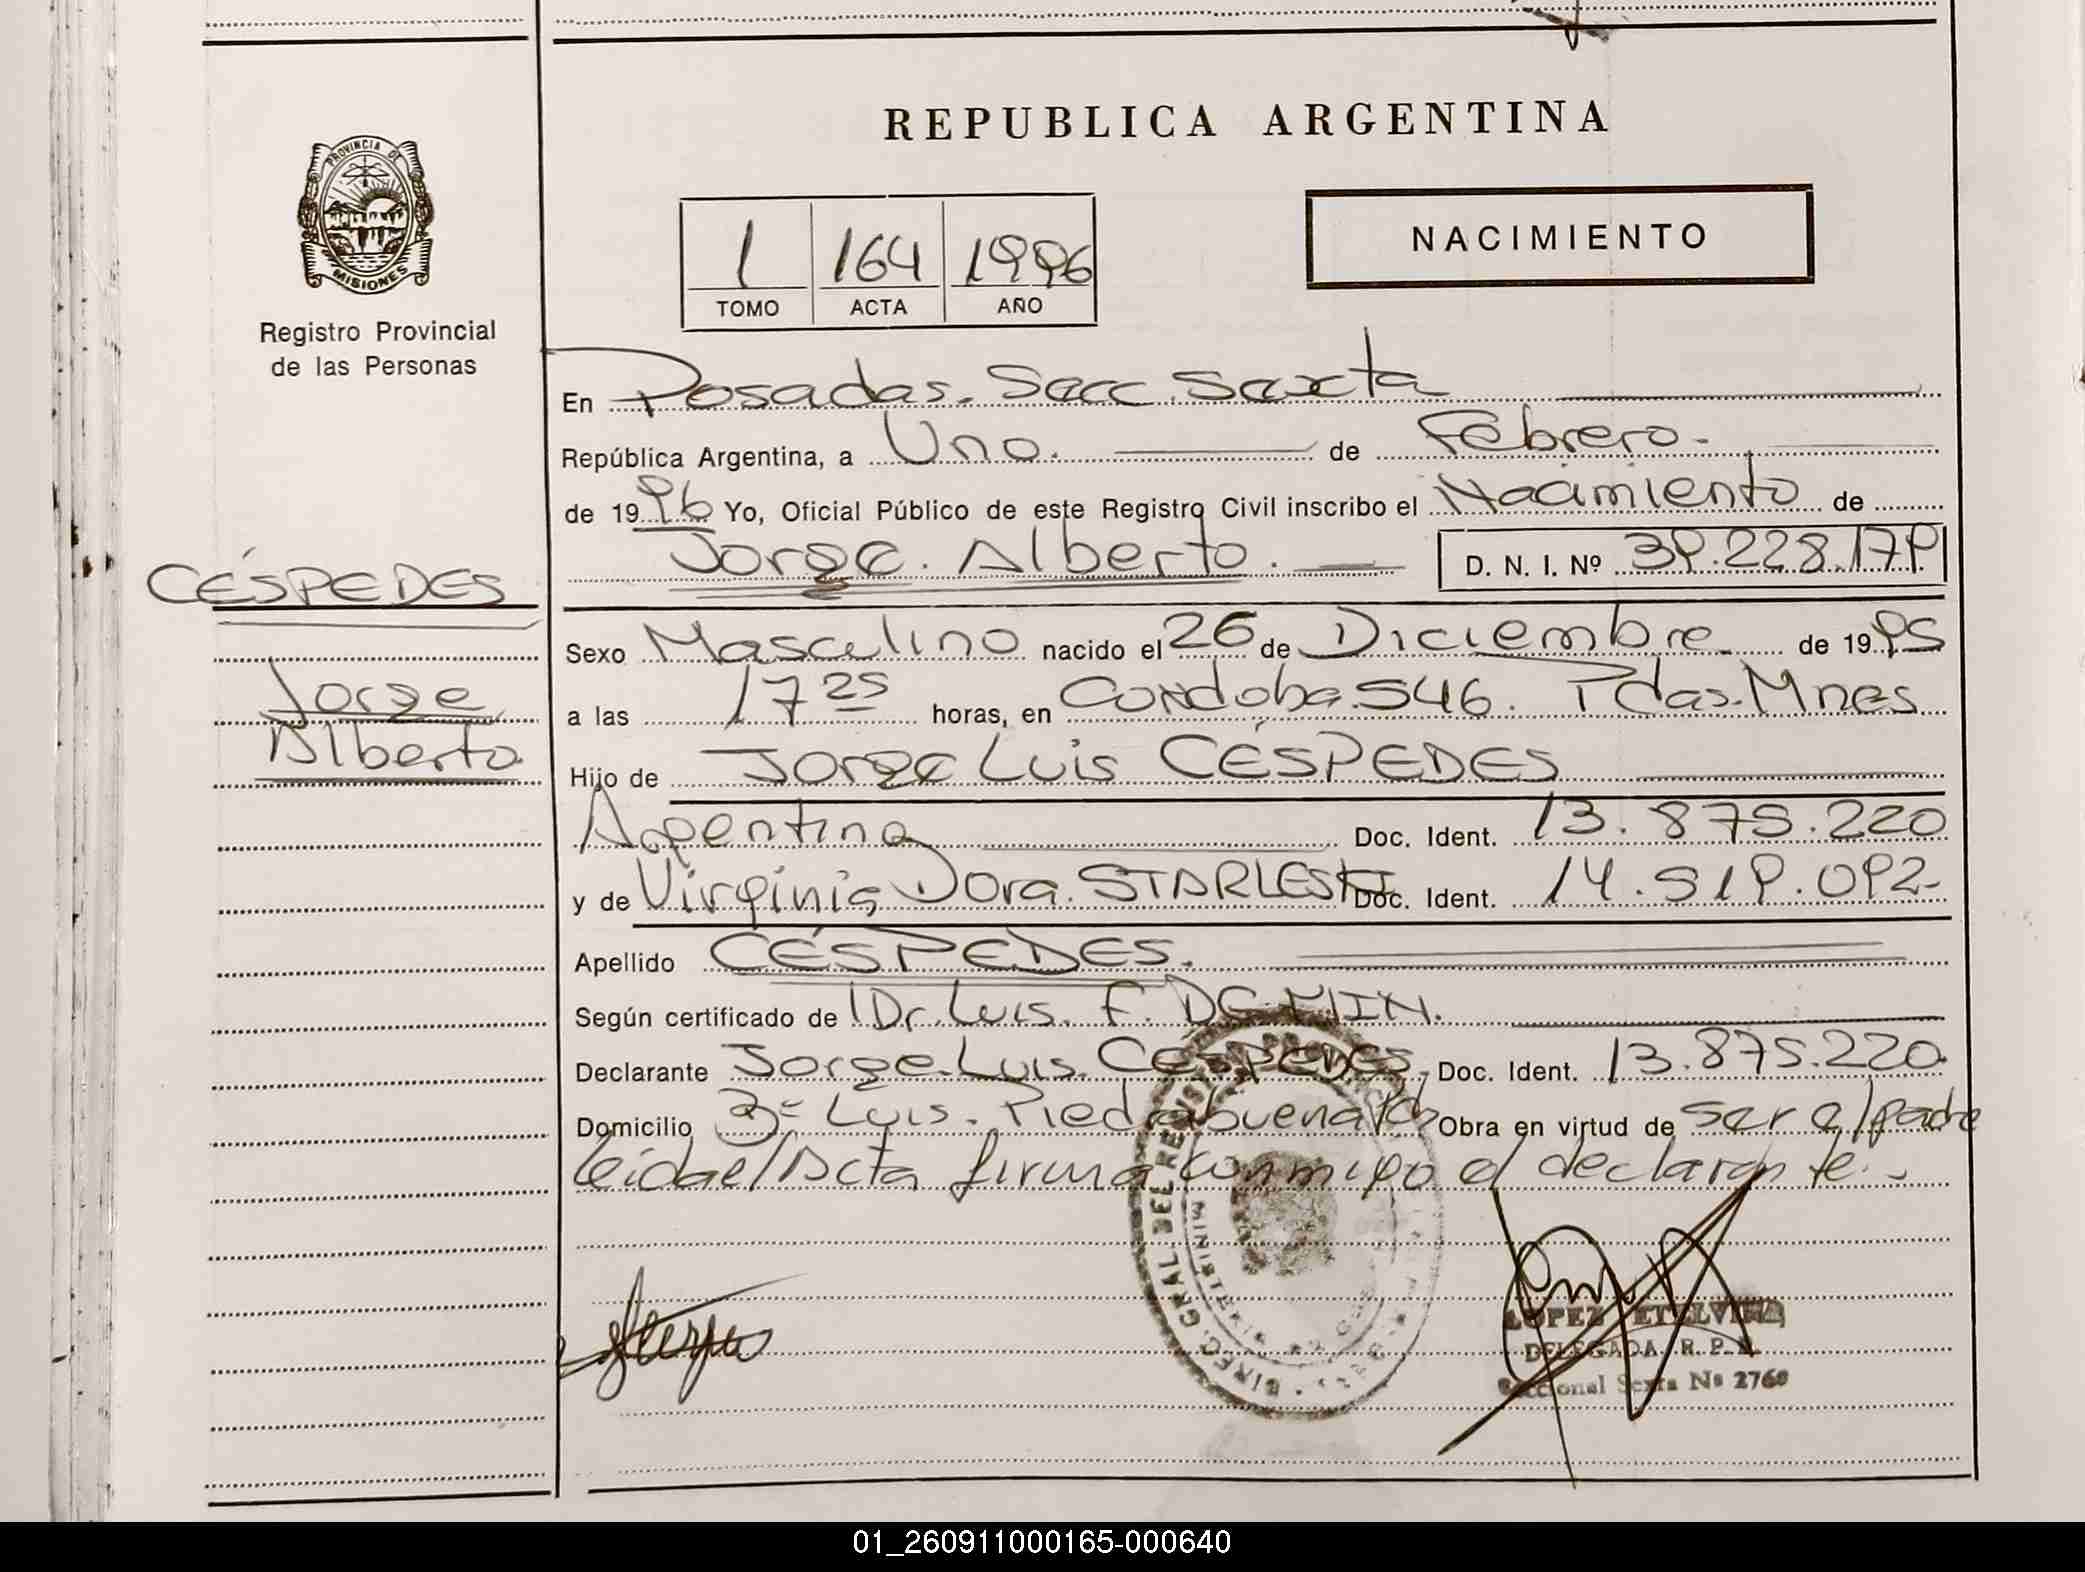 PROVINCIA DE
MISIONES
Registro Provincial
de las Personas
CÉSPEDES
Jorge
Alberto
REPUBLICA ARGENTINA
1 164 1996
TOMO ACTA AÑO
NACIMIENTO
En Posadas. Secc. Sexta
República Argentina, a Uno. de Febrero.
de 1996 Yo, Oficial Público de este Registro Civil inscribo el Nacimiento de
Jorge. Alberto. D. N. I. Nº 39.228.179
Sexo Masculino nacido el 26 de Diciembre de 1995
a las 17 25 horas, en Cordoba 546. Pdas. Mnes
Hijo de Jorge Luis CÉSPEDES
Argentina Doc. Ident. 13.875.220
y de Virginia Dora. STARLESKI Doc. Ident. 14.519.092
Apellido CÉSPEDES.
Según certificado de Dr. Luis. F. DE MIN.
Declarante Jorge. Luis. CÉSPEDES. Doc. Ident. 13.875.220
Domicilio Luis. Piedrabuena Obra en virtud de ser el padre
leida el Acta firma conmigo el declarante.
DIREC. GRAL DEL
LOPEZ ETELVINA
DELEGADA R. P. P.
Seccional Sexta Nº 2760
01_260911000165-000640